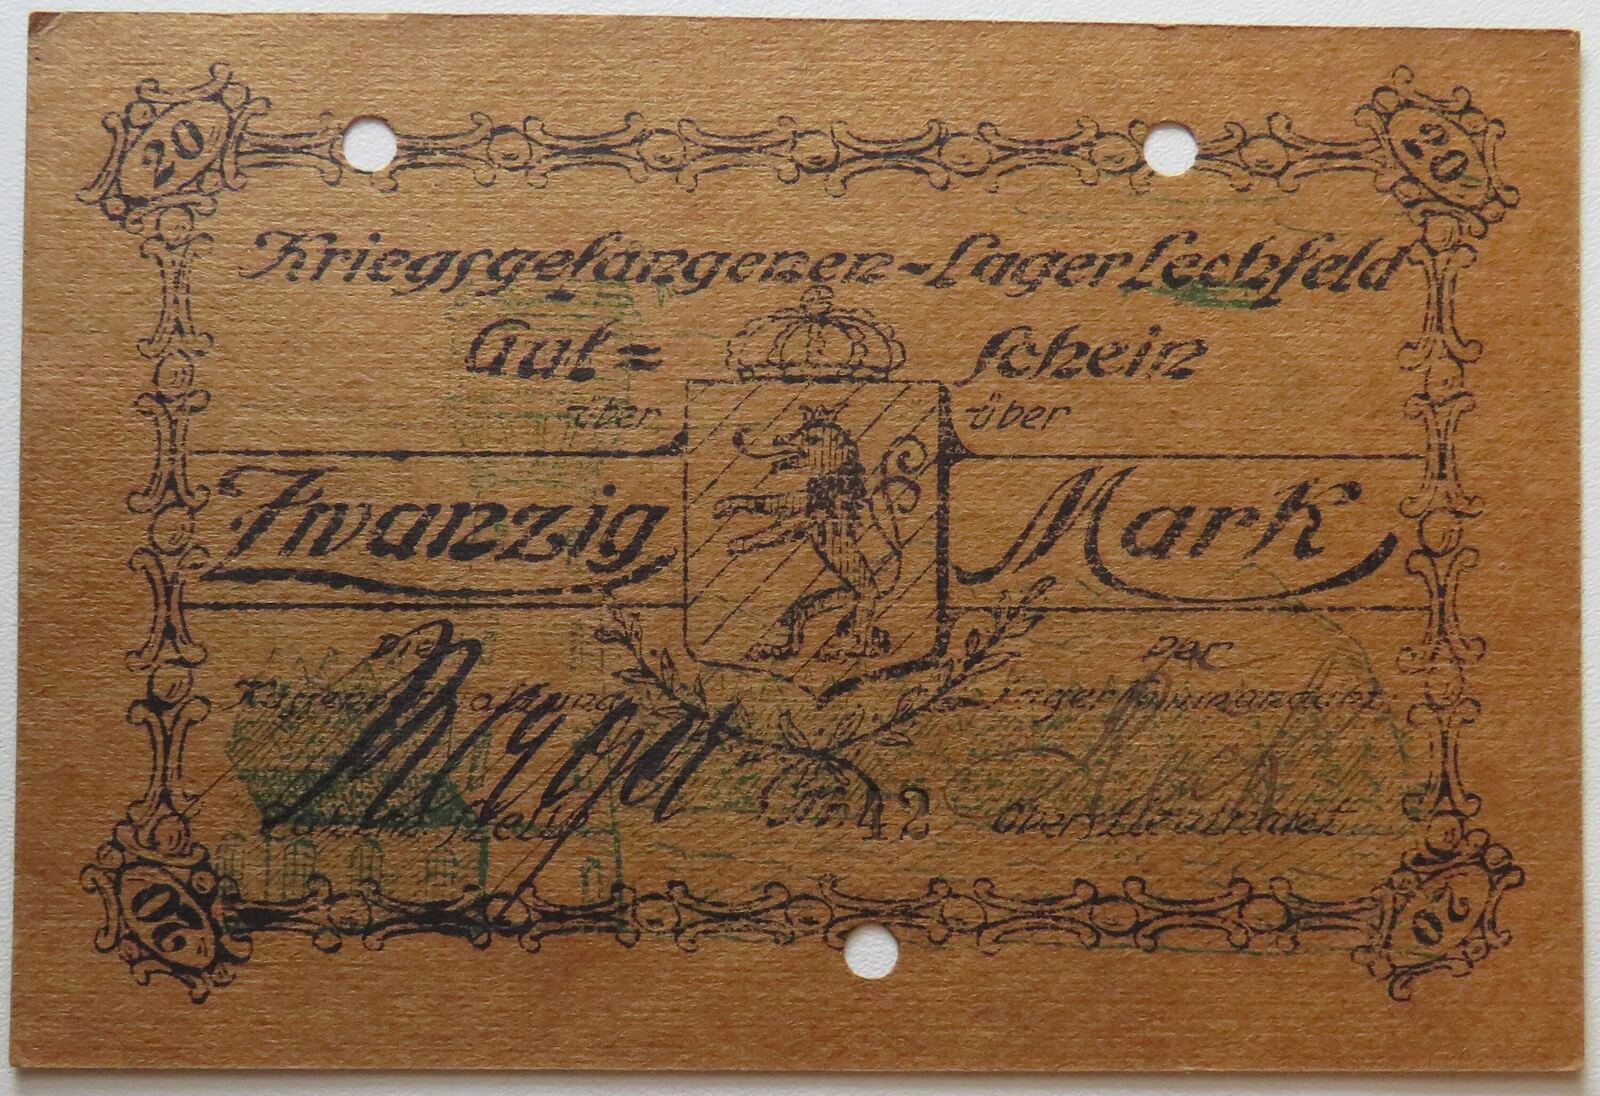 20 20
Kriegsgefangenen-Lager Lechfeld
Gut= schein
über über
Zwanzig Mark
Die Der
Lagerkommandant:
No. 42 Oberstleutnant
20 20